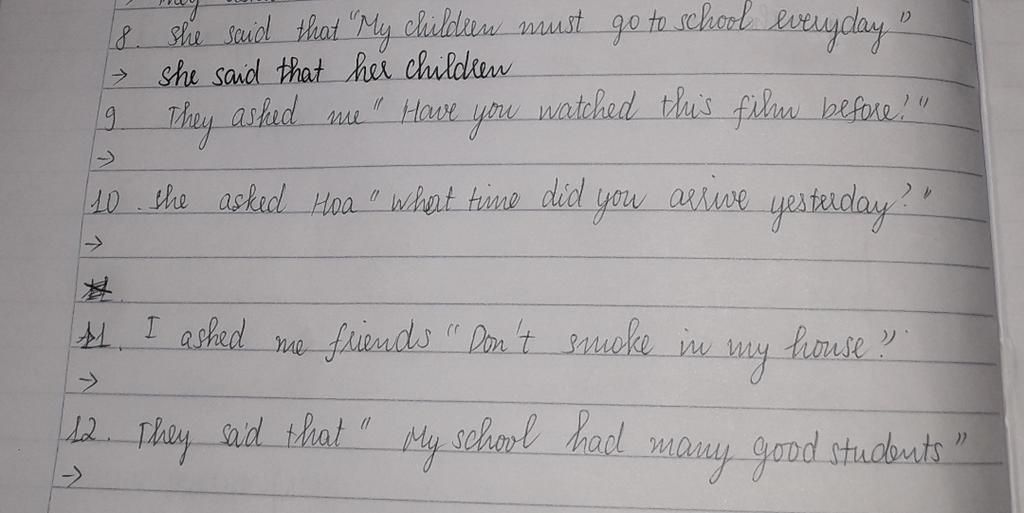 8. She said that "My children must go to school everyday"
→ She said that her children
9. They asked me "Have you watched this film before?"
→
10. She asked Hoa "What time did you arrive yesterday?"
→
11. I asked me friends "Don't smoke in my house?"
→
12. They said that "My school had many good students"
→